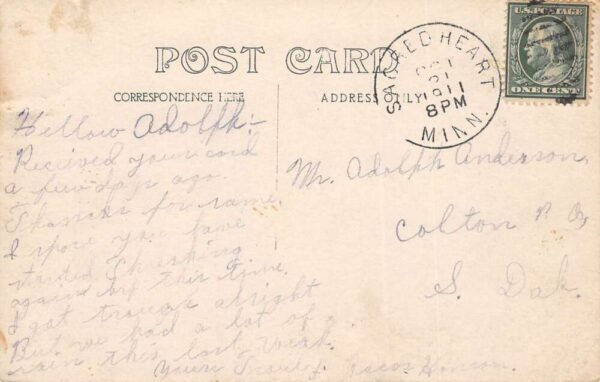 POST CARD
CORRESPONDENCE HERE
ADDRESS ONLY
SACRED HEART
OCT
21
1911
8PM
MINN.
U.S. POSTAGE
ONE CENT
Hellow Adolph:-
Recieved your card
a few days ago.
Thanks for same.
I spose you have
started Thrashing
again by this time.
I got trough alright
But we had a lot of
rain this last Weak.
Yours Truely Oscar
Mr. Adolph Anderson,
Colton P. O,
S. Dak.